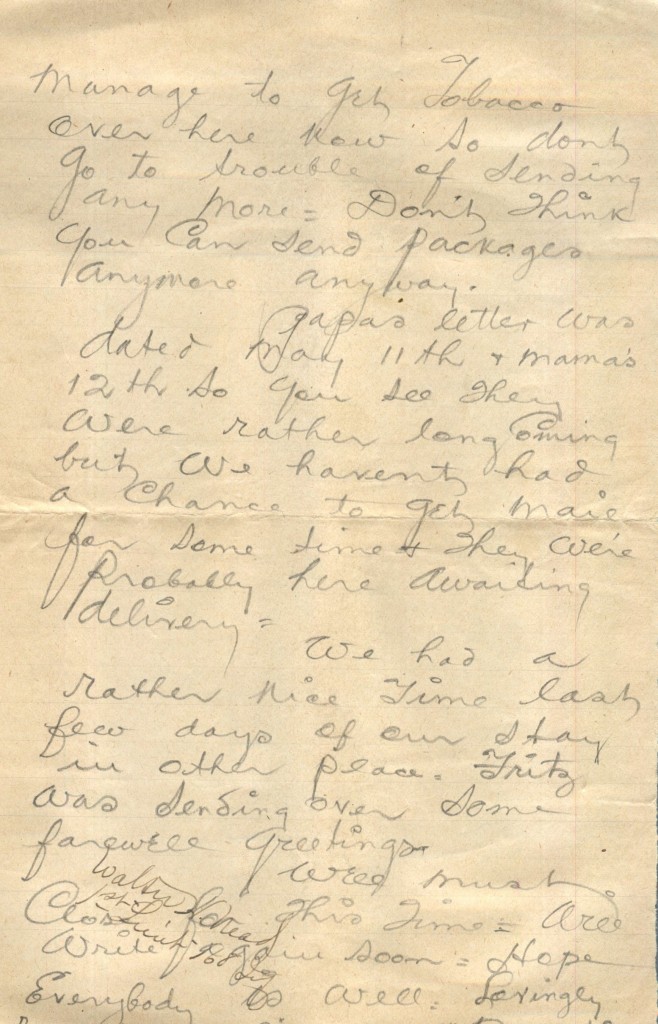 Manage to get Tobacco
over here now so dont
go to trouble of sending
any more = Don't Think
you can send packages
anymore anyway.
Papas letter was
dated May 11th & mama's
12th so you see They
were rather long coming
but we havent had
a chance to get mail
for some time & They were
Probably here awaiting
delivery =
We had a
rather nice Time last
few days of our stay
in other place. Fritz
was sending over some
farewell greetings.
Well must
Close for This Time = Will
Write again soon = Hope
Everybody is well. Lovingly